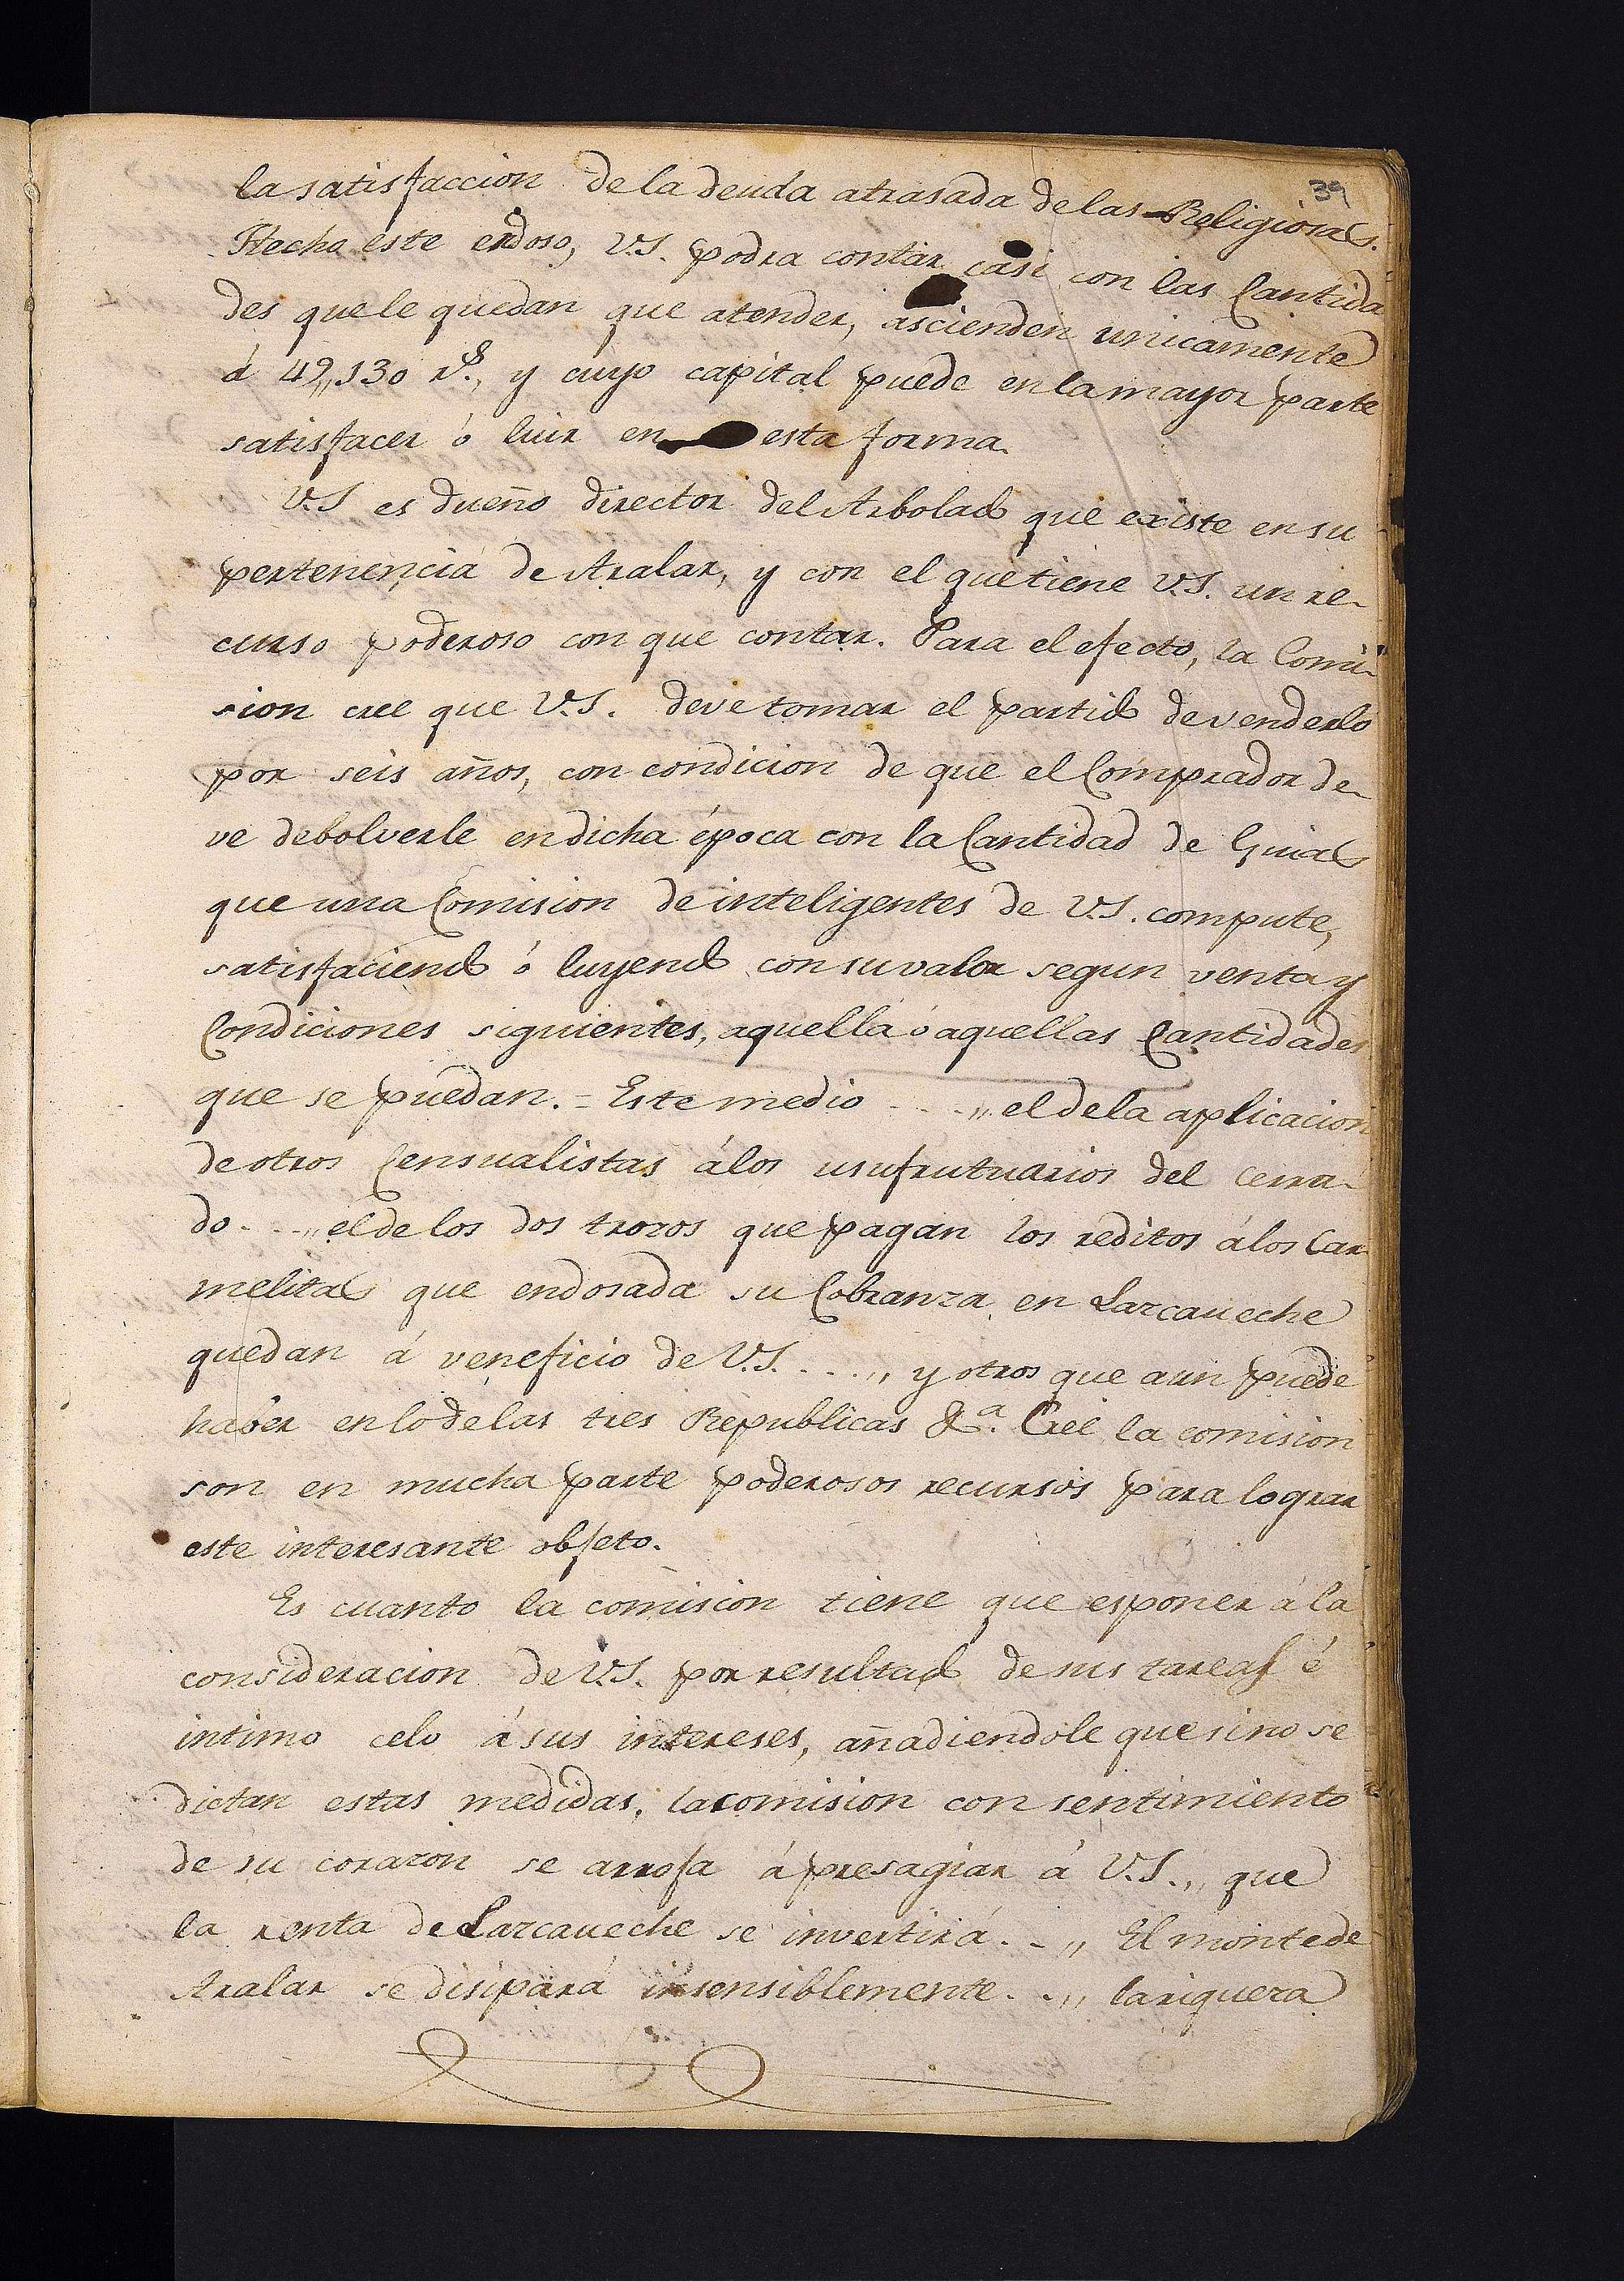 39
la satisfaccion de la deuda atrasada de las Religiosas.
Hecha este endoso, V.S. podra contar casi con las Cantida
des que le quedan que atender, ascienden unicamente
á 49,,130 r.s, y cuyo capital puede en la mayor parte
satisfacer ó luir en esta forma.
V.S es dueño director del Arbolado que existe en su
pertenencia de Aralar, y con el que tiene V.S. un re-
curso poderoso con que contar. Para el efecto, la Comi-
sion cree que V.S. deve tomar el partido de venderlo
por seis años, con condicion de que el Comprador de-
ve debolverle en dicha época con la Cantidad de Guias
que una Comision de inteligentes de V.S. compute,
satisfaciendo ó luyendo con su valor segun venta y
Condiciones siguientes, aquella ó aquellas Cantidades
que se puedan. = Este medio . . . ,, el de la aplicacion
de otros Censualistas á los usufrutuarios del cerra-
do . . . ,, el de los dos trozos que pagan los reditos á los Car
melitas que endosada su Cobranza en Larcaueche
quedan á veneficio de V.S. . . . ,, y otros que aun puede
haver en lo de las tres Republicas &.a Cree la comision
son en mucha parte poderosos recursos para lograr
este interesante objeto.
Es cuanto la comision tiene que esponer á la
consideracion de V.S. por resultado de sus tareas é
intimo celo á sus intereses, añadiendole que sino se
dictan estas medidas, la comision con sentimiento
de su corazon se arroja á presagiar á V.S.,, que
la renta de Larcaueche se invertirá. . ,, El monte de
Aralar se disipará insensiblemente. . ,, la riqueza